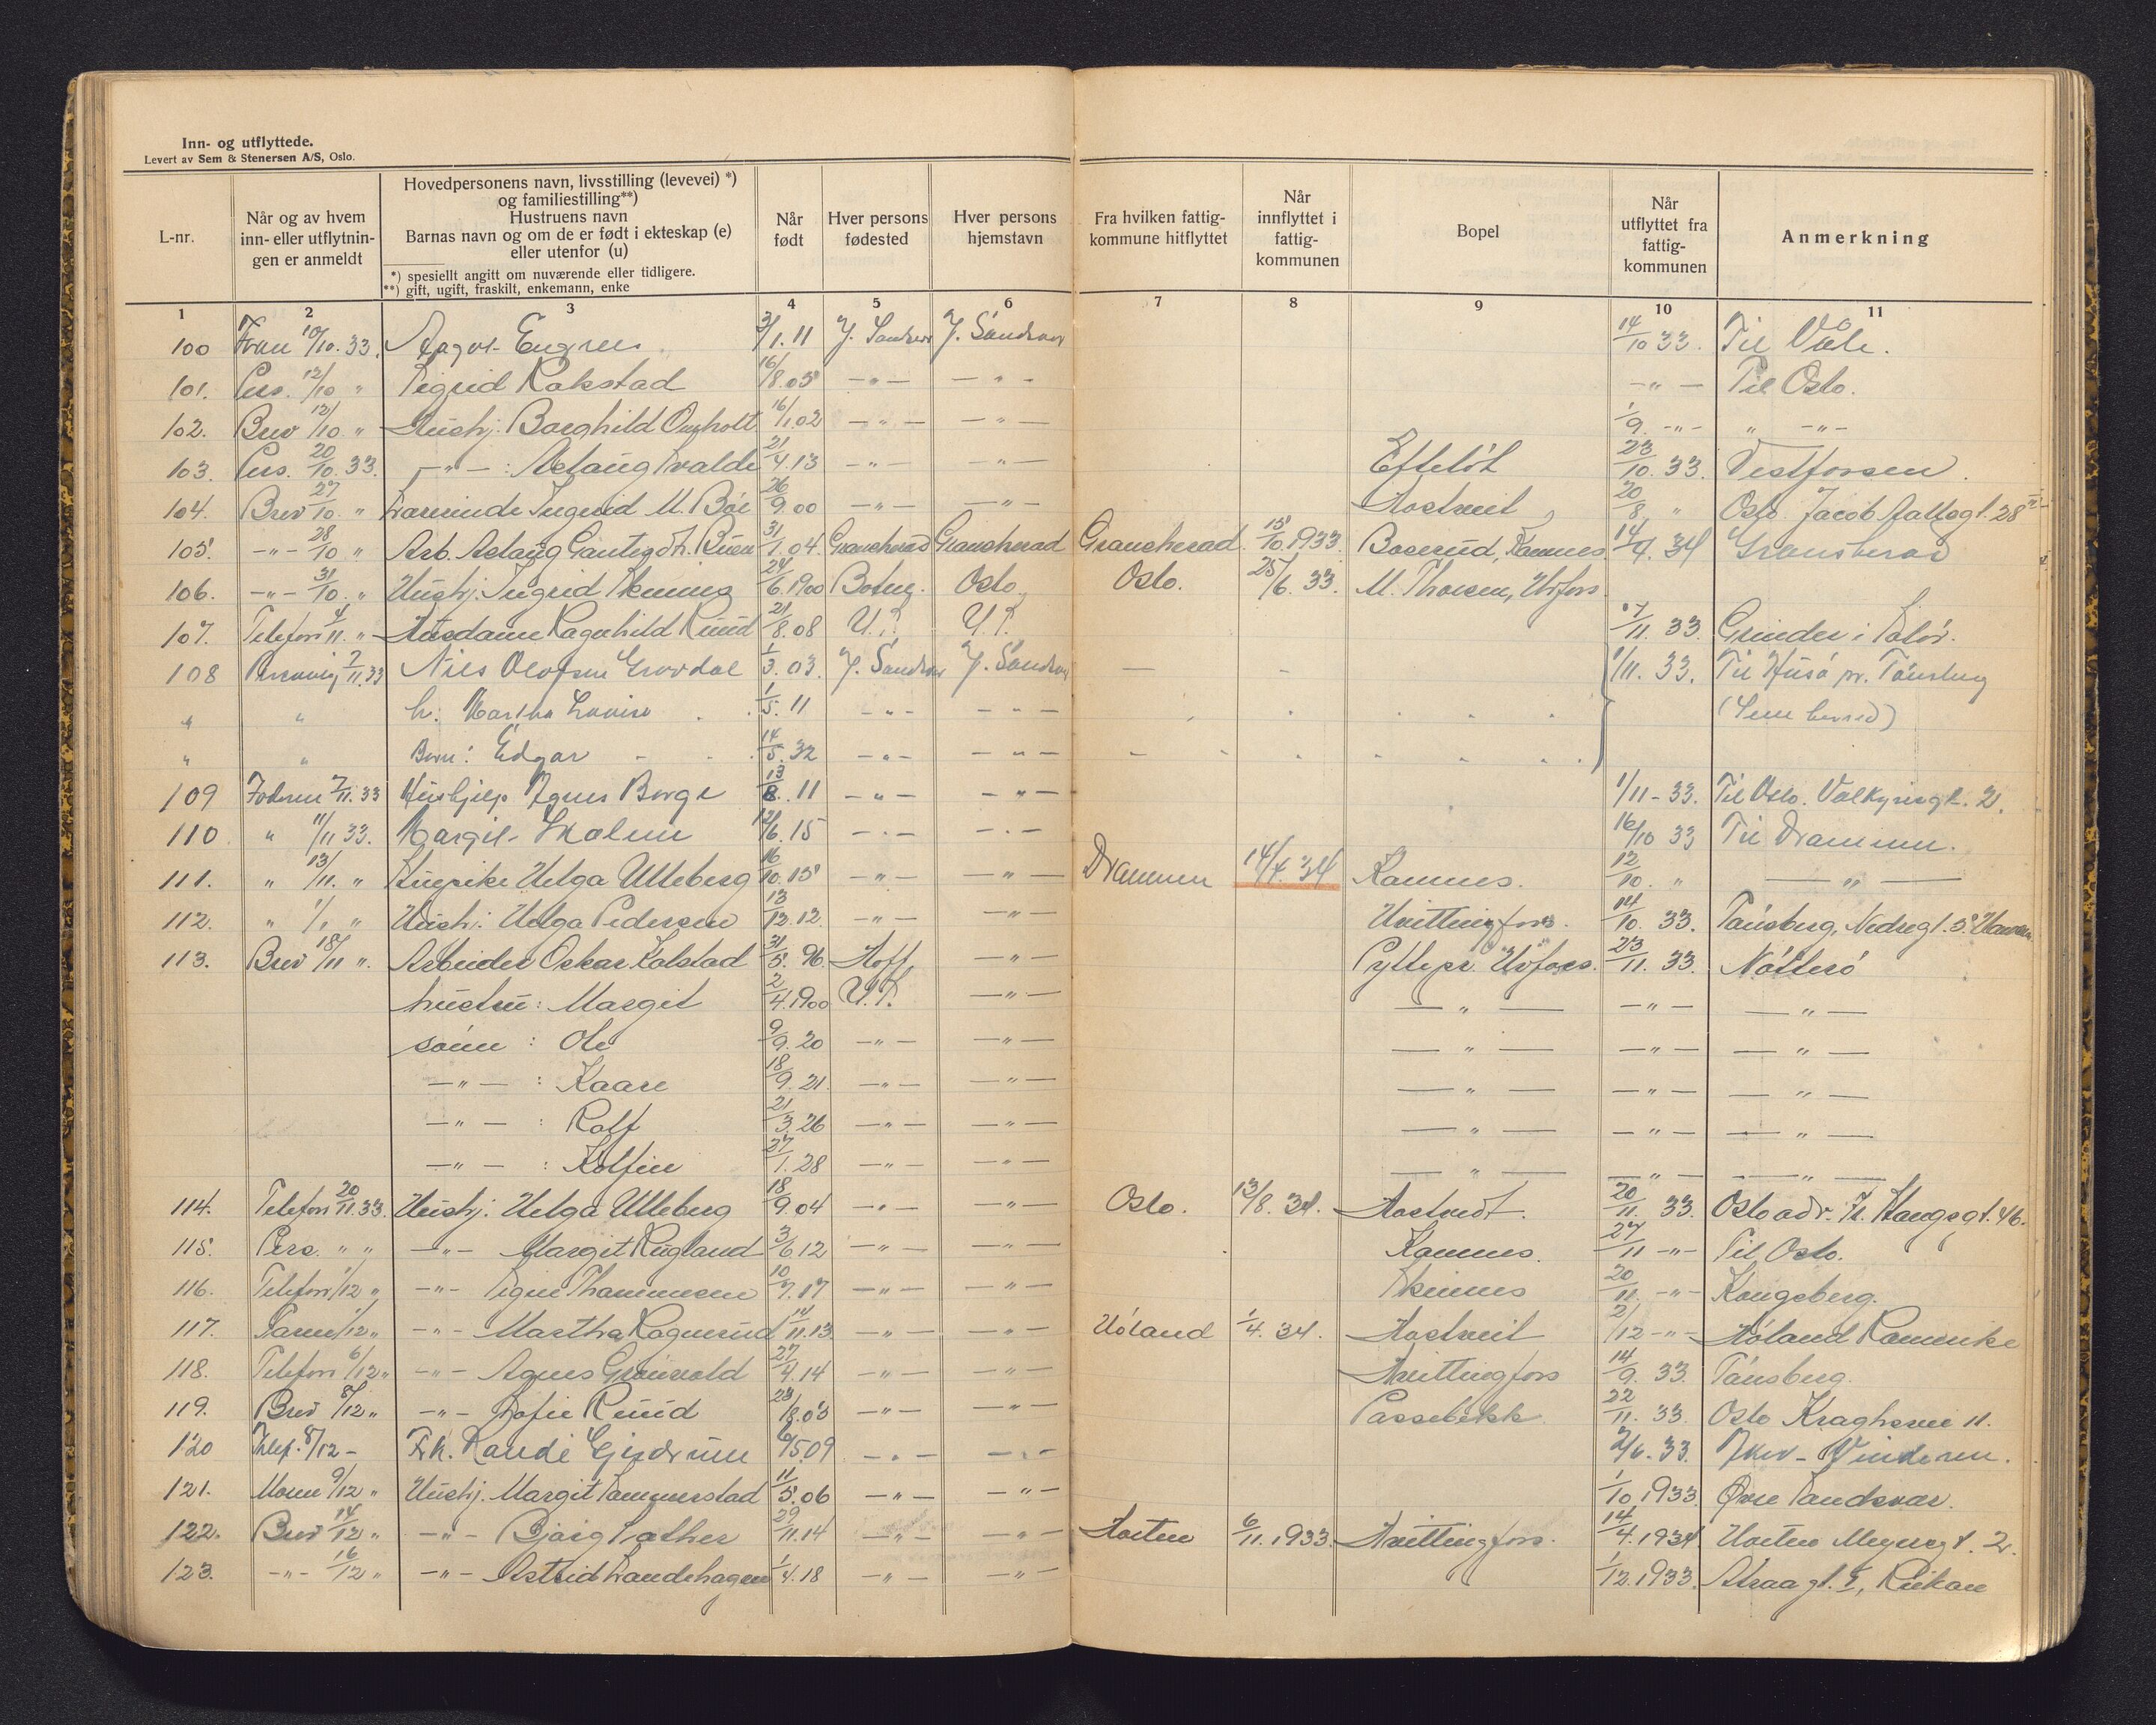 Inn- og utflyttede.
Levert av Sem & Stenersen A/S, Oslo.
L-nr.
Når og av hvem inn- eller utflytnin-gen er anmeldt
Hovedpersonens navn, livsstilling (levevei) *) og familiestilling**) Hustruens navn Barnas navn og om de er født i ekteskap (e) eller utenfor (u)
*) spesielt angitt om nuværende eller tidligere.
**) gift, ugift, fraskilt, enkemann, enke
Når født
Hver persons fødested
Hver persons hjemstavn
Fra hvilken fattig-kommune hitflyttet
Når innflyttet i fattig-kommunen
Bopel
Når utflyttet fra fattig-kommunen
Anmerkning
1 2 3 4 5 6 7 8 9 10 11
100 10/10.33. Aagot 3/1.11 Y. Sandsvær Y. Sandsvær 14/10 33. Til Våle.
101. Pers. 12/10 " Sigrid Kakstad 16/8.05 -"- -"- -"- Til Oslo.
102. Brev 12/10 " Hushj. Borghild Omholt 16/1.02 -"- -"- 1/9. -"- " -"-
103. Pers. 20/10.33. -"-: Aslaug 21/4.13 -"- -"- Efteløt 23/10.33. Vestfossen.
104. Brev 27/10. " Ingrid M. Bøe 26/9.00 -"- -"- Hostveit 20/8 " Oslo Jacob Aallsgt. 28
105. -"- 28/10 " Arb. Aslaug Gautesdtr. Buen 31/1.04. Gransherad Gransherad Gransherad 15/10.1933. Boserud, Komnes. 14/4.34 Gransherad
106. -"- 31/10. " Hushj. Ingrid 24/6.1900 Botne. Oslo. Oslo. 25/6.33. M. Thorsen, Hvfors.
107. Telefon 4/11. " Husdame Ragnhild Ruud 21/8.08 Y.S. Y.S. 7/11 33. Grinder i Solør.
108 2/11.33 Nils Olofsen Grovdal 1/3.03. Y. Sandsvær Y. Sandsvær - - 1/11.33. Til Husø pr. Tønsberg
" " h: Martha Lovise 1/5.11 -"- -"- (Sem herred)
" " Barn: Edgar 14/5.32 -"- -"-
109 7/11.33 Hushjelp Agnes Berge 13/8.11 -"- -"- 1/11-33. Til Oslo. Valkyriegt. 2.
110 " 11/11 33. Margit 12/6.15 -"- -"- 16/10 33 Til Drammen.
111. " 13/11. " Helga Ulleberg 16/10.15 -"- -"- Drammen 14/4.34 Komnes. 12/10. " -"-
112. " " " Hushj: Helga Pedersen 13/12.12 -"- -"- Hvittingfoss. 14/10.33. Tønsberg, Nedregt. 5.
113. Brev 18/11 ". Arbeider Oskar Kolstad 31/5.96. Hoff -"- Hvfoss. 23/11.33. Nøtterø
hustru: Margit 2/4.1900 Y.S. -"- -"- -"- -"-
sønn: Ole 9/9.20 -"- -"- -"- -"- -"-
-"-: Kaare 18/9.21. -"- -"- -"- -"- -"-
-"-: Rolf 21/3.26 -"- -"- -"- -"- -"-
-"-: Kolfin 27/1.28 -"- -"- -"- -"- -"-
114. Telefon 20/11.33. Hushj. Helga Ulleberg 18/9.04 -"- -"- Oslo. 13/8.34. Hostvedt. 20/11.33. Oslo adr. Fr. Stangsgt. 46.
115. Pers. " " -"- Margit Rugland 3/6 12 -"- -"- Komnes. 27/11 -"- Til Oslo.
116. Telefon 1/12 " -"- Signe Thommesen 10/7.17 -"- -"- Skinnes 20/11. -"- Kongsberg.
117. 1/12 " -"- Martha Ragnerud 14/11.13. -"- -"- Høland 1/4.34. Hostveit 2/12 -"- Høland Romerike
118. Telefon 6/12 " -"- Agnes Grønvold 27/4.14 -"- -"- Hvittingfoss 14/9.33. Tønsberg.
119. Brev 8/12 " -"- Sofie Ruud 23/8.03 -"- -"- Passebekk. 22/11.33. Oslo 11.
120 Telef. 8/12 - Frk. Randi 6/5.09 -"- -"- 2/6.33. Vinderen.
121. 9/12 " Hushj. Margit Tommerstad 11/5.06 -"- -"- 1/10.1933. Øvre Sandsvær.
122. Brev 14/12 " -"- Bjørg Sæther 29/11.14 -"- -"- Horten 6/11.1933. Hvittingfoss. 14/4.1934 Horten Meyersgt. 2.
123. -"- 16/12 " -"- Astrid Landehagen 1/4.18 -"- -"- 1/12.1933. Rjukan